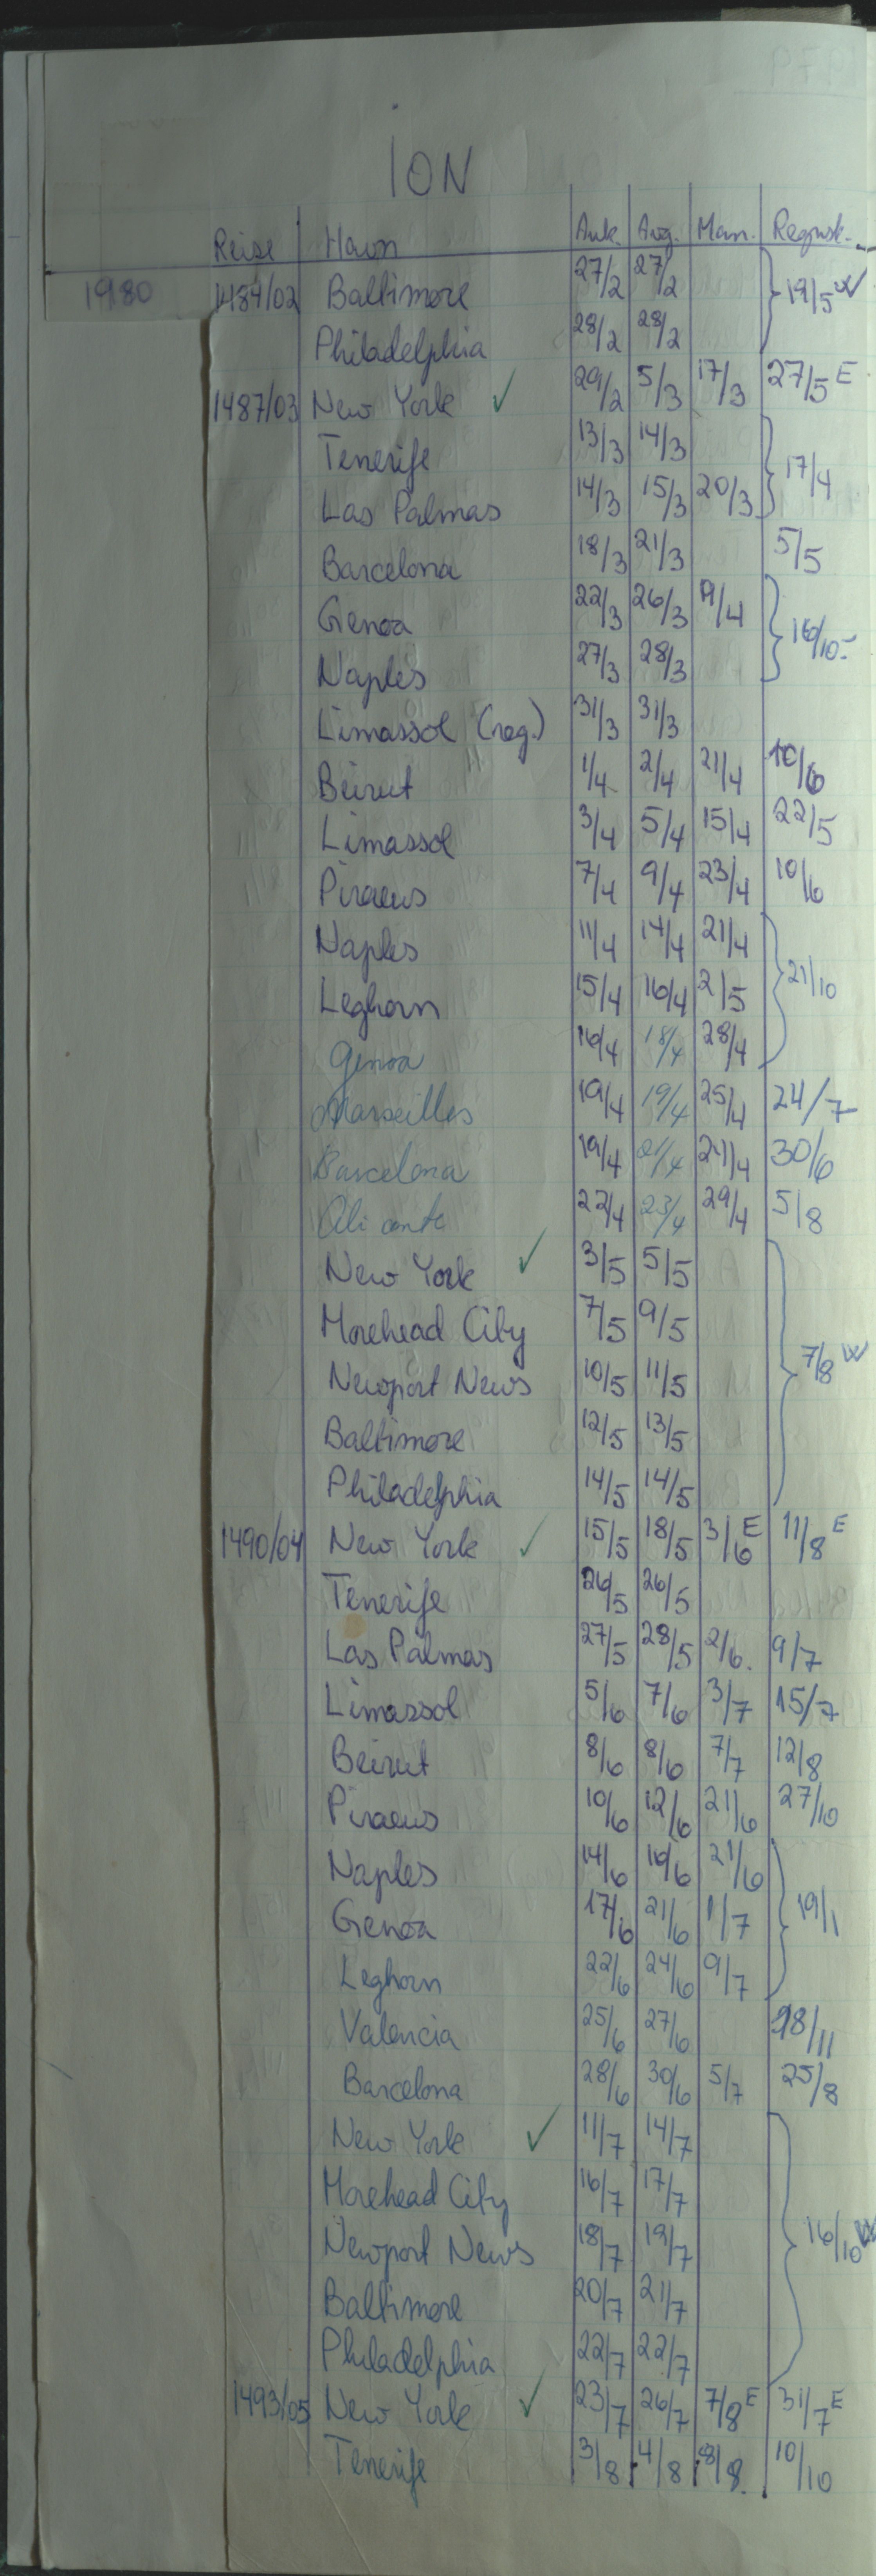 1979
ION
Reise Havn Ank. Avg. Man. Regnsk.
1980 1484/02 Baltimore 27/2 27/2 19/5 W
Philadelphia 28/2 28/2
1487/03 New York ✓ 29/2 5/3 17/3 27/5 E
Tenerife 13/3 14/3 17/4
Las Palmas 14/3 15/3 20/3
Barcelona 18/3 21/3 5/5
Genoa 22/3 26/3 9/4 16/10-
Naples 27/3 28/3
Limassol (reg.) 31/3 31/3
Beirut 1/4 2/4 21/4 10/6
Limassol 3/4 5/4 15/4 22/5
Piraeus 7/4 9/4 23/4 10/6
Naples 11/4 14/4 21/4
Leghorn 15/4 16/4 2/5 21/10
Genoa 16/4 18/4 28/4
Marseilles 19/4 19/4 25/4 24/7
Barcelona 19/4 21/4 24/4 30/6
Alicante 22/4 23/4 29/4 5/8
New York ✓ 3/5 5/5
Morehead City 7/5 9/5
Newport News 10/5 11/5 7/8 W
Baltimore 12/5 13/5
Philadelphia 14/5 14/5
1490/04 New York ✓ 15/5 18/5 3/6 E 11/8 E
Tenerife 26/5 26/5
Las Palmas 27/5 28/5 2/6. 9/7
Limassol 5/6 7/6 3/7 15/7
Beirut 8/6 8/6 7/7 12/8
Piraeus 10/6 12/6 21/6 27/10
Naples 14/6 16/6 21/6
Genoa 17/6 21/6 1/7 19/1
Leghorn 22/6 24/6 9/7
Valencia 25/6 27/6 18/11
Barcelona 28/6 30/6 5/7 25/8
New York ✓ 11/7 14/7
Morehead City 16/7 17/7
Newport News 18/7 19/7 16/10 W
Baltimore 20/7 21/7
Philadelphia 22/7 22/7
1493/05 New York ✓ 23/7 26/7 7/8 E 31/7 E
Tenerife 3/8 4/8 8/8 10/10